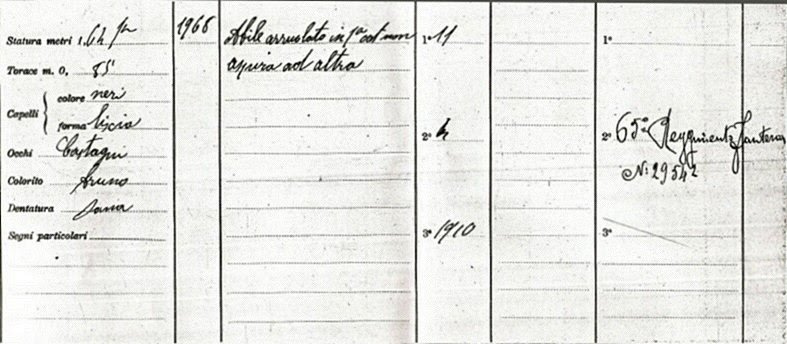 Statura metri 1,64 ½
Torace m. 0, 85
Capelli
colore neri
forma liscia
Occhi Castagni
Colorito bruno
Dentatura sana
Segni particolari
1968
Abile arruolato in 1ª cat non
aspira ad altra
1º 11
2º 4
3º 1910
1º
2º 65º Reggimento Fanteria
N. 29542
3º